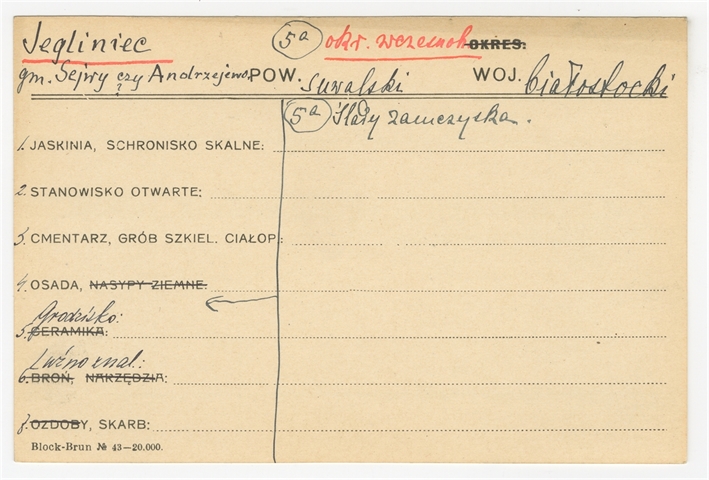 Jegliniec 5a okr. wczesnoh. OKRES:
gm. Sejwy czy Andrzejewo. POW. Suwalski WOJ. białostocki
?
5a Ślady zamczyska.
1. JASKINIA, SCHRONISKO SKALNE:
2. STANOWISKO OTWARTE:
3. CMENTARZ, GRÓB SZKIEL. CIAŁOP.:
4. OSADA, NASYPY ZIEMNE:
Grodzisko:
5. CERAMIKA:
Luźno znal.:
6. BROŃ, NARZĘDZIA:
7. OZDOBY, SKARB:
Block-Brun № 43—20.000.